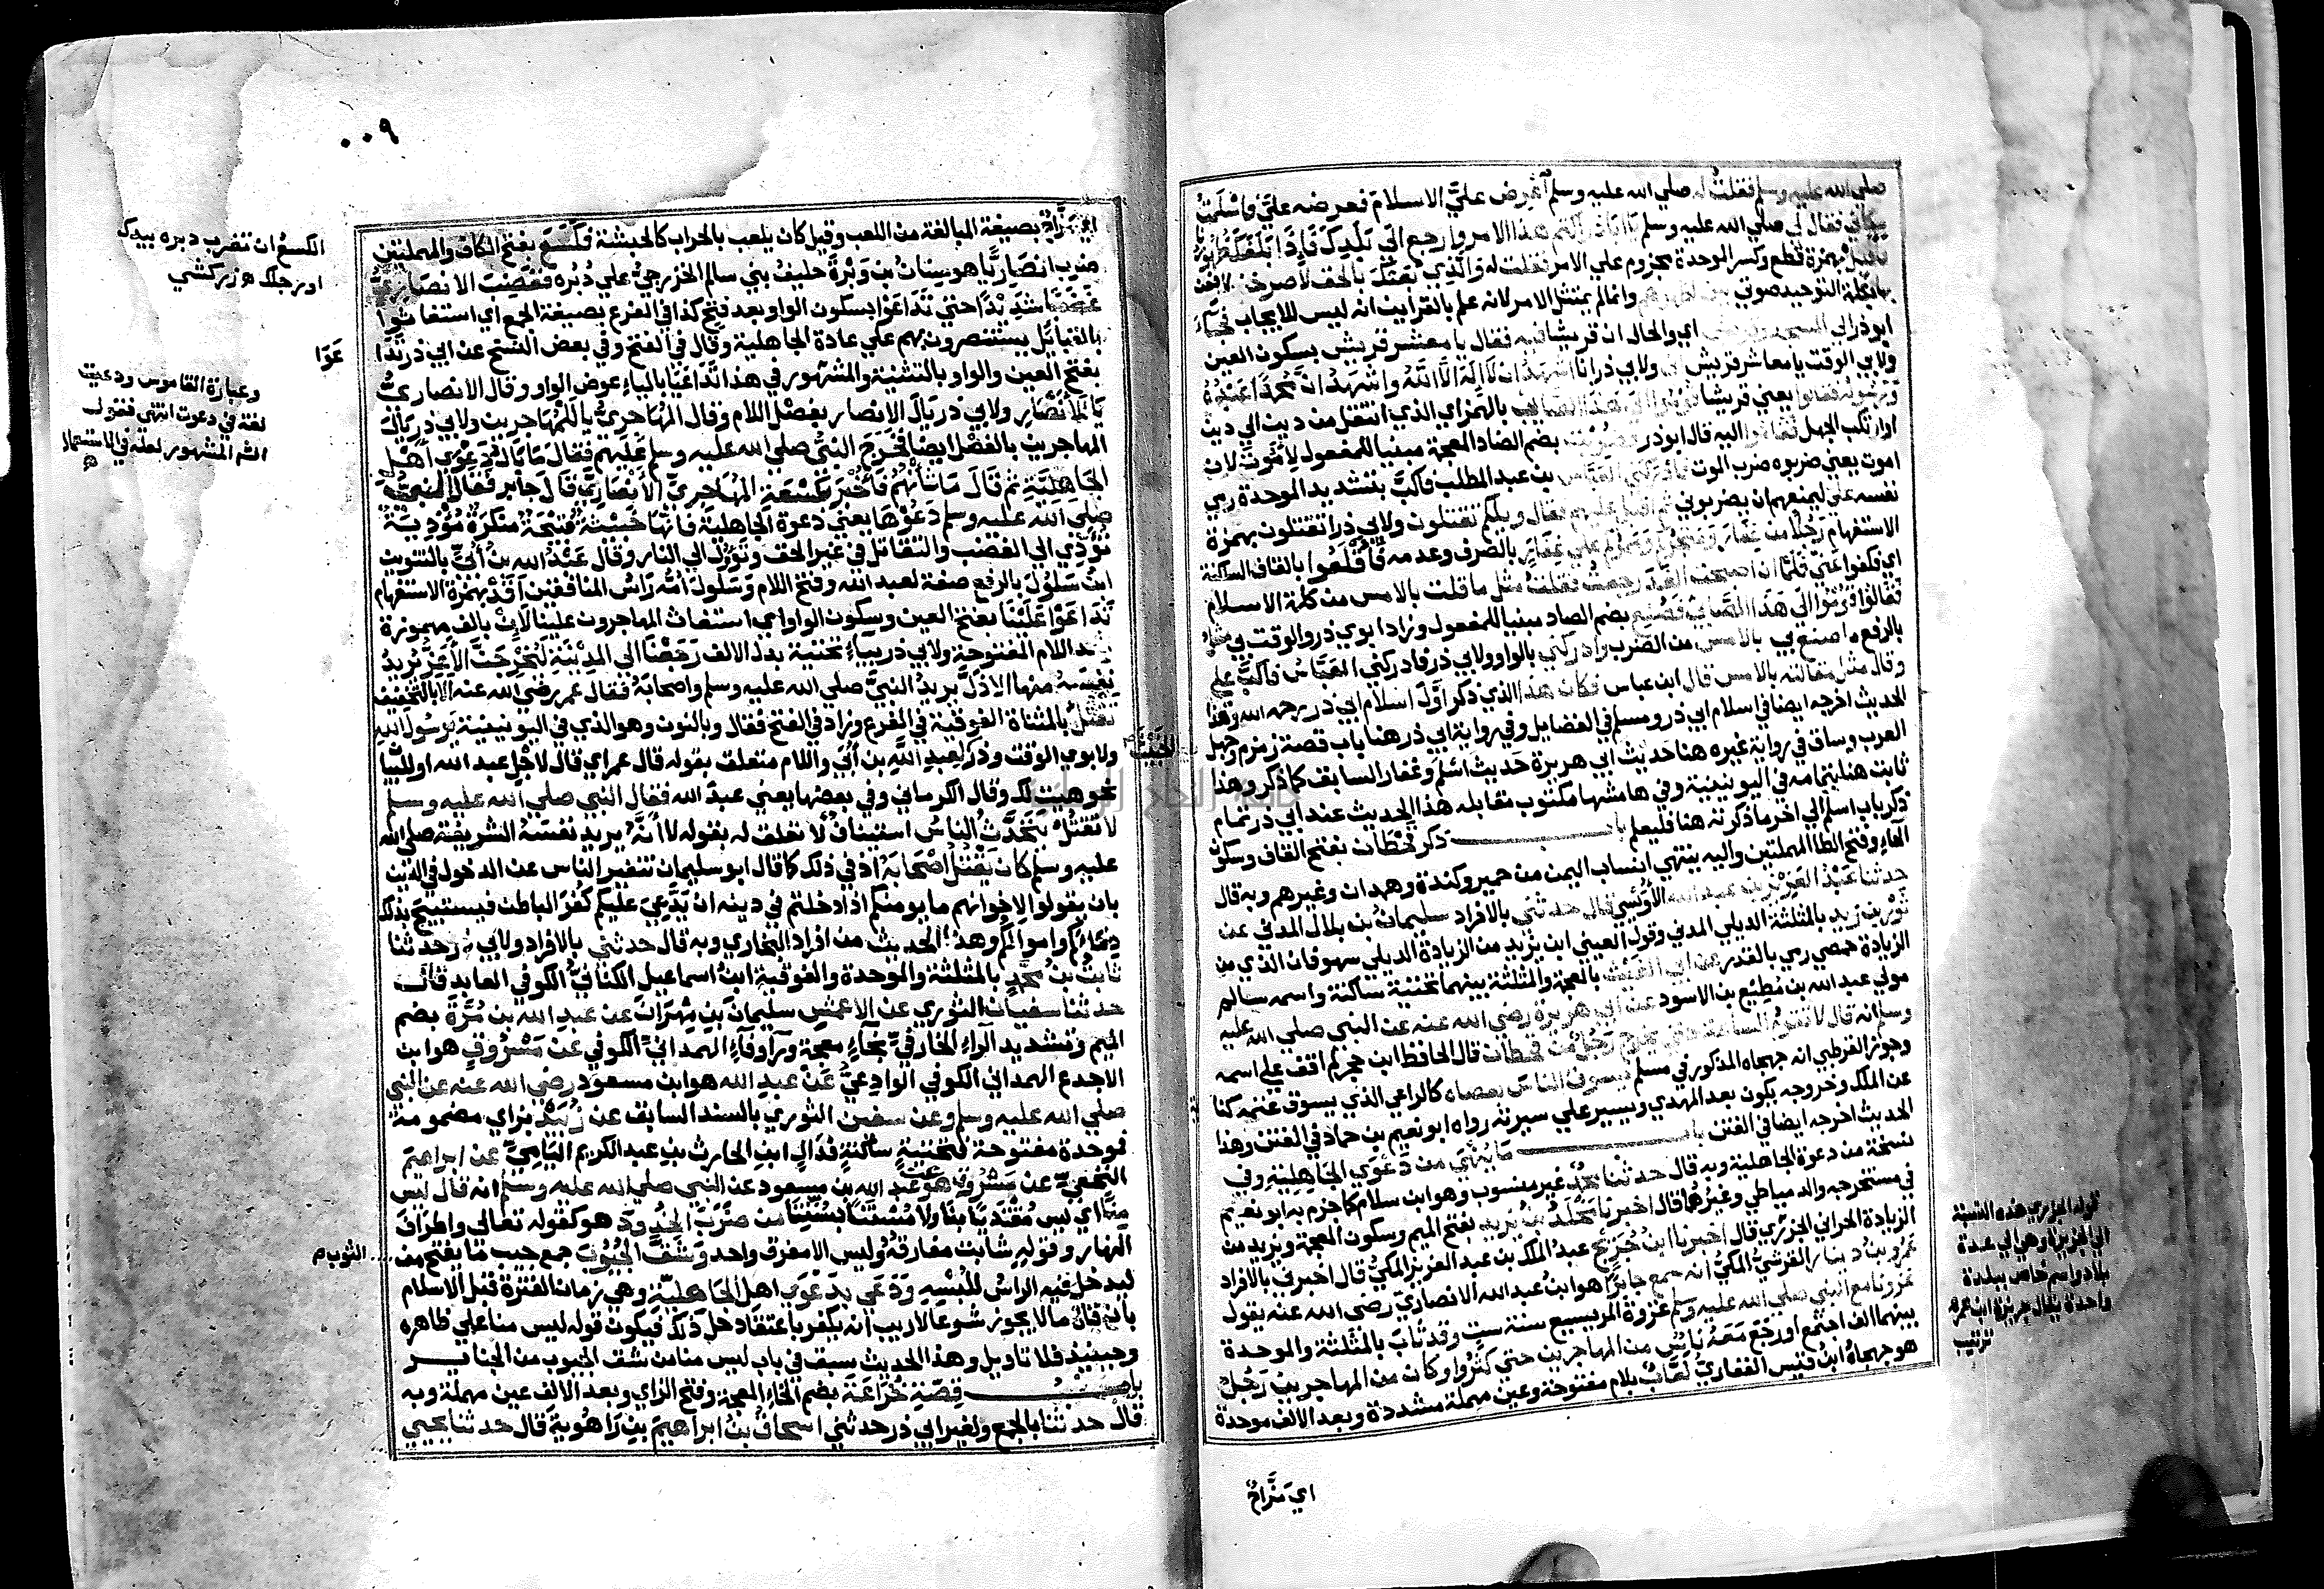 صلي الله عليه وسلم فقلت له صلي الله عليه وسلم اعرض عليّ الاسلام فعرضه عليّ فاسلمت
مكاني فقال لي صلي الله عليه وسلم يا ابا ذر اكتم هذا الامر وارجع الي بلدك فاذا بلغك ظهورنا
فاقبل بهمزة قطع وكسر الموحدة مجزوم علي الامر فقلت له والذي بعثك بالحق لاصرخن
بكلمة التوحيد صوتي بين اظهرهم وانما لم يمتثل الامر لانه علم بالقراين انه ليس للايجاب فجاء
ابو ذر الي المسجد وقريش اي والحال ان قريشا فيه فقال يا معشر قريش بسكون العين
ولابي الوقت يا معاشر قريش ولابي ذر انا اشهد ان لا اله الا الله واشهد ان محمدا عبده
ورسوله فقالوا يعني قريشا قوموا الي هذا الصابئ بالهمز اي الذي انتقل من دين الي دين
او ارتكب الجهل فقاموا اليه قال ابو ذر فضربت بضم الضاد المعجمة مبنيا للمفعول لاموت لان
اموت يعني ضربوه ضرب الموت فادركني العباس بن عبد المطلب فاكب بتشديد الموحدة رمي
نفسه علي ليمنعهم ان يضربوني ثم اقبل عليهم فقال ويلكم تقتلون ولابي ذر اتقتلون بهمزة
الاستفهام رجلا من غفار ومتجركم وممركم علي غفار بالصرف وعدمه فاقلعوا بالقاف الساكنة
اي فكفوا عني فلما ان اصبحت الغد رجعت فقلت مثل ما قلت بالامس من كلمة الاسلام
فقالوا قوموا الي هذا الصابئ فصنع بضم الصاد مبنيا للمفعول وزاد ابوي ذر والوقت بي مثل
بالرفع ما صنع بي بالامس من الضرب وادركني بالواو ولابي ذر فادركني العباس فاكب علي
وقال مثل مقالته بالامس قال ابن عباس فكان هذا الذي ذكر اول اسلام ابي ذر رحمه الله وهذا
الحديث اخرجه ايضا في اسلام ابي ذر ومسلم في الفضايل وفي رواية ابي ذر هنا باب قصة زمزم وجهل
العرب وساق في رواية غيره هنا حديث ابي هريرة حديث اسلم وغفار السابق كما ذكر وهذا
ثابت هنا بتمامه في اليونينية وفي هامشها مكتوب مقابله هذا الحديث عند ابي ذر تمام
ذكر باب اسلم الي اخر ما ذكرته هنا فليعلم باب ذكر قحطان بفتح القاف وسكون
الحاء وفتح الطا المهملتين واليه ينتهي انساب اليمن من حمير وكندة وهمدان وغيرهم وبه قال
حدثنا عبد العزيز بن عبد الله الاويسي قال حدثني بالافراد سليمان بن بلال المدني عن
ثور بن زيد بالمثلثة الديلي المدني وقول العيني ابن يزيد من الزيادة الديلي سهو فان الذي من
الزيادة حمصي رمي بالقدر عن ابي الغيث بالمعجمة والمثلثة بينهما تحتية ساكنة واسمه سالم
مولي عبد الله بن مطيع بن الاسود عن ابي هريرة رضي الله عنه عن النبي صلي الله عليه
وسلم انه قال لا تقوم الساعة حتي يخرج رجل من قحطان قال الحافظ ابن حجر لم اقف علي اسمه
وجوز القرطبي انه جهجاه المذكور في مسلم يسوق الناس بعصاه كالراعي الذي يسوق غنمه كنا
عن الملك وخروجه يكون بعد المهدي ويسير علي سيرته رواه ابو نعيم بن حماد في الفتن وهذا
الحديث اخرجه ايضا في الفتن باب ما ينهي من دعوي الجاهلية وفي
نسخة من دعوة الجاهلية وبه قال حدثنا محمد غير منسوب وهو ابن سلام كما جزم به ابو نعيم
في مستخرجه والدمياطي وغيرهما قال اخبرنا مخلد بن يزيد بفتح الميم وسكون المعجمة ويزيد من
الزيادة الحراني الجزري قال اخبرنا ابن جريج عبد الملك بن عبد العزيز المكي قال اخبرني بالافراد
عمرو بن دينار القرشي المكي انه سمع جابرا هو ابن عبد الله الانصاري رضي الله عنه يقول
غزونا مع النبي صلي الله عليه وسلم غزوة المريسيع سنة ست وقد ثاب بالمثلثة والموحدة
بينهما الف اجتمع او رجع معه ناس من المهاجرين حتي كثروا وكان من المهاجرين رجل
هو جهجاه ابن قيس الغفاري لعاب بلام مفتوحة وعين مهملة مشددة وبعد الالف موحدة
قوله الجزري هذه النسبة
الي الجزيرة وهي الي عدة
بلاد واسم خاص ببلدة
واحدة يقال جزيرة ابن عمر
ترتيب
اي مزاح
٠٠٩
اي مزاح بصيغة المبالغة من اللعب وقيل كان يلعب بالحراب كالحبشة فكسع بفتح الكاف والمهملتين
ضرب انصاريا هو سنان بن وبرة حليف بني سالم الخزرجي علي دبره فغضب الانصاري
غضبا شديدا حتي تداعوا بسكون الواو بعد فتح كذا في الفرع بصيغة الجمع اي استغاثوا
بالقبايل يستنصرون بهم علي عادة الجاهلية وقال في الفتح وفي بعض النسخ عن ابي ذر تداعوا
بفتح العين والواو بالتثنية والمشهور في هذا تداعيا بالياء عوض الواو وقال الانصاري
يا للانصار ولابي ذر يال الانصار بفصل اللام وقال المهاجري يا للمهاجرين ولابي ذر يال
المهاجرين بالفصل ايضا فخرج النبي صلي الله عليه وسلم عليهم فقال ما بال دعوي اهل
الجاهلية ثم قال ما شأنهم فاخبر بكسعة المهاجري الانصاري قال جابر فقال النبي
صلي الله عليه وسلم دعوها يعني دعوة الجاهلية فانها خبيثة قبيحة منكرة مؤذية
تؤدي الي الغضب والتقاتل في غير الحق وتؤول الي النار وقال عبد الله بن ابي بالتنوين
ابن سلول بالرفع صفة لعبد الله وفتح اللام وسلول امه راس المنافقين اقد بهمزة الاستفهام
تداعوا علينا بفتح العين وسكون الواو اي استغاث المهاجرون علينا لان بالف مهموزة
بعد اللام المفتوحة ولابي ذر بياء تحتية بدل الالف رجعنا الي المدينة ليخرجن الاعز يريد
نفسه منها الاذل يريد النبي صلي الله عليه وسلم واصحابه فقال عمر رضي الله عنه الا بالتخفيف
نقتل بالمثناة الفوقية في الفرع وزاد في الفتح فقال وبالنون وهو الذي في اليونينية يا رسول الله
ولابوي الوقت وذر لعبد الله بن ابي واللام متعلق بقوله قال عمر اي قال لاجل عبد الله او للبيان
نحو هيت لك وقال الكرماني وفي بعضها يعني عبد الله فقال النبي صلي الله عليه وسلم
لا نقتل يتحدث الناس استيناف لا تعلق له بقوله لا انه يريد نفسه الشريفة صلي الله
عليه وسلم كان يقتل اصحابه اذ في ذلك كما قال ابو سليمان تنفير الناس عن الدخول في الدين
بان يقولوا لاخوانهم ما يؤمنكم اذا دخلتم في دينه ان يدعي عليكم كفر الباطن فيستبيح بذلك
دماءكم واموالكم وهذا الحديث من افراد البخاري وبه قال حدثني بالافراد ولابي ذر حدثنا
ثابت بن محمد بالمثلثة والموحدة والفوقية ابن اسماعيل الكناني الكوفي العابد قال
حدثنا سفيان الثوري عن الاعمش سليمان بن مهران عن عبد الله بن مرة بضم
الميم وتشديد الراء الخارفي بخاء معجمة وراء وفاء الهمداني الكوفي عن مسروق هو ابن
الاجدع الهمداني الكوفي الوادعي عن عبد الله هو ابن مسعود رضي الله عنه عن النبي
صلي الله عليه وسلم وعن سفين الثوري بالسند السابق عن زبيد بزاي مضمومة
فموحدة مفتوحة فتحتية ساكنة فدال ابن الحارث بن عبد الكريم اليامي عن ابراهيم
النخعي عن مسروق هو عن عبد الله بن مسعود عن النبي صلي الله عليه وسلم انه قال ليس
منا اي ليس مقتديا بنا ولا مستنا بسنتنا من ضرب الخدود هو كقوله تعالي واطراف
النهار وقوله شابت مفارقه وليس الا مفرق واحد وشق الجيوب جمع جيب ما يفتح من
ليدخل فيه الراس للبسه ودعي بدعوي اهل الجاهلية وهي زمان الفترة قبل الاسلام
بان قال ما لا يجوز شرعا لا ريب انه يكفر باعتقاد حل ذلك فيكون قوله ليس منا علي ظاهره
وحينيذ فلا تاويل وهذا الحديث سبق في باب ليس منا من شق الجيوب من الجنايز
باب قصة خزاعة بضم الخاء المعجمة وفتح الزاي وبعد الالف عين مهملة وبه
قال حدثنا بالجمع ولغير ابي ذر حدثني اسحاق بن ابراهيم بن راهويه قال حدثنا يحيي
الكسع ان تضرب دبره بيدك
او برجلك ه زركشي
عَوَا
وعبارة القاموس ودعيت
لغة في دعوت انتهي فقول
الشم المشهور لعله في الاستعمال
الخبيث
الثوب م